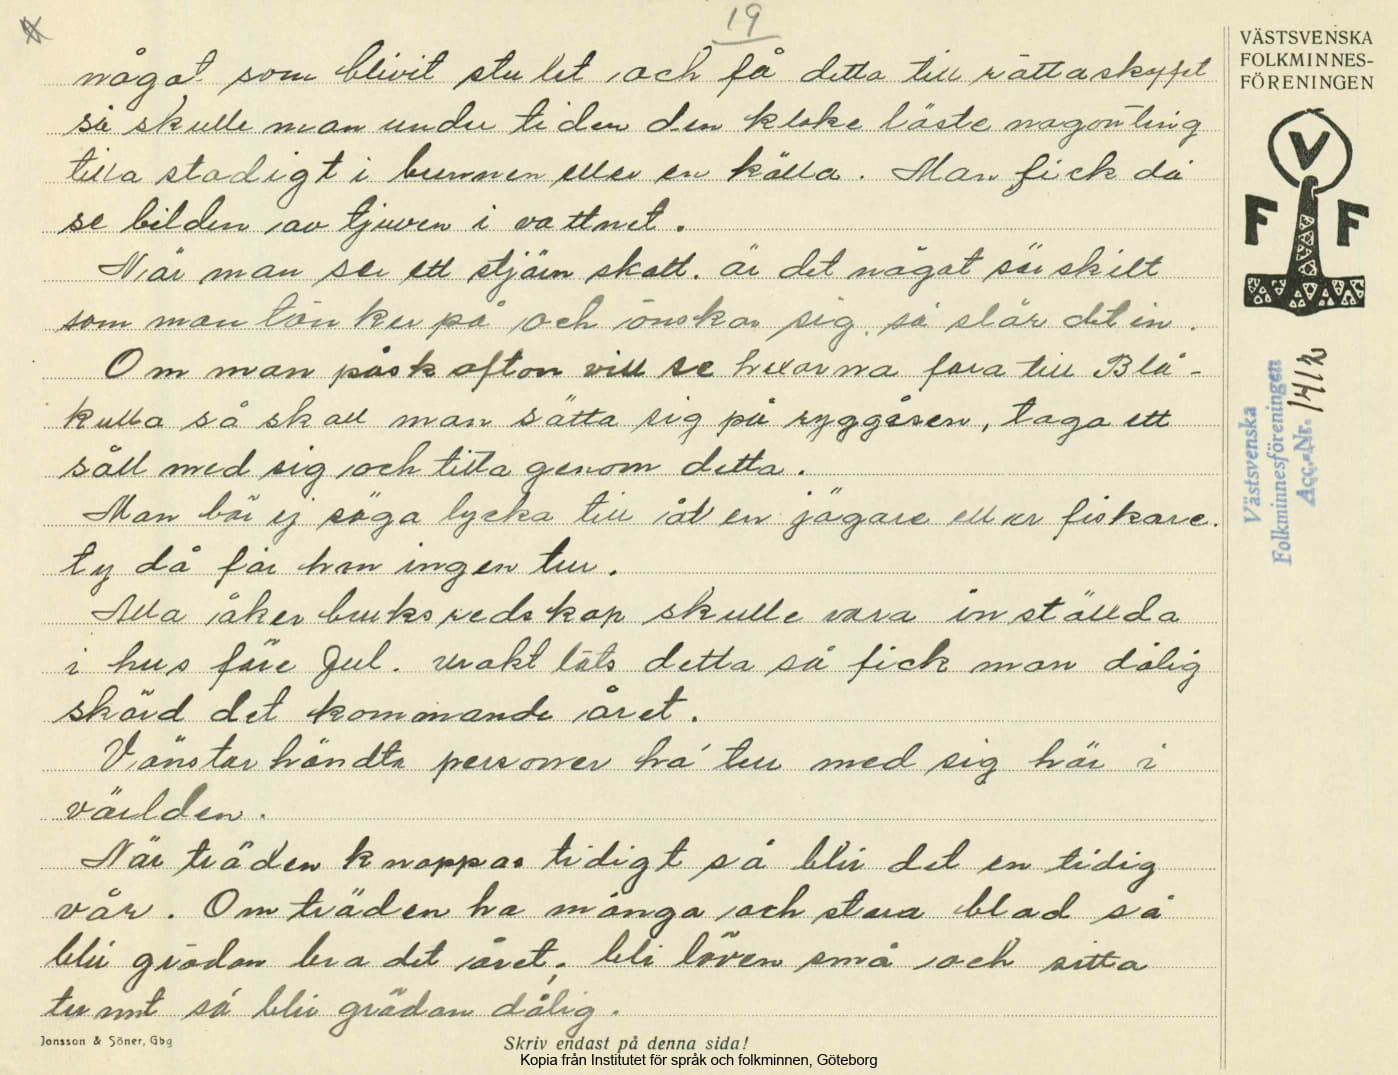 19
något som blivit stulet och få detta till rätta skaffat
så skulle man under tiden den kloke läste någonting
titta stadigt i brunnen eller en källa. Man fick då
se bilden av tjuven i vattnet.
När man ser ett stjärnskott. är det något särskilt
som man tänker på och önskar sig. så slår det in.
Om man påskafton vill se hexorna fara till Blå-
kulla så skall man sätta sig på ryggåsen, taga ett
såll med sig och titta genom detta.
Man bör ej säga lycka till åt en jägare eller fiskare.
ty då får han ingen tur.
Alla åkerbruksredskap skulle vara inställda
i hus före Jul. uraktläts detta så fick man dålig
skörd det kommande året.
Vänsterhändta personer ha tur med sig här i
världen.
När träden knoppas tidigt så blir det en tidig
vår. Om träden ha många och stora blad så
blir grödan bra det året, bli löven små och sitta
tunnt så blir grödan dålig.
VÄSTSVENSKA
FOLKMINNES-
FÖRENINGEN
V
F F
Västsvenska
Folkminnesföreningen
Acc.-Nr. 1412
Jonsson & Söner, Gbg
Skriv endast på denna sida!
Kopia från Institutet för språk och folkminnen, Göteborg